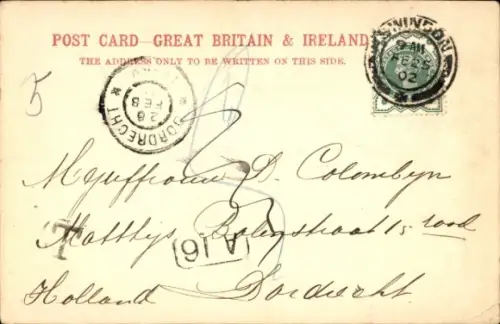 POST CARD—GREAT BRITAIN & IRELAND
THE ADDRESS ONLY TO BE WRITTEN ON THIS SIDE.
SWINDON
9 AM
FE 25
02
DORDRECHT
26
FEB
5
Mejuffrouw D. Colombijn
Matthijs Balenstraat 15 rood
T
A 16
Holland Dordrecht.